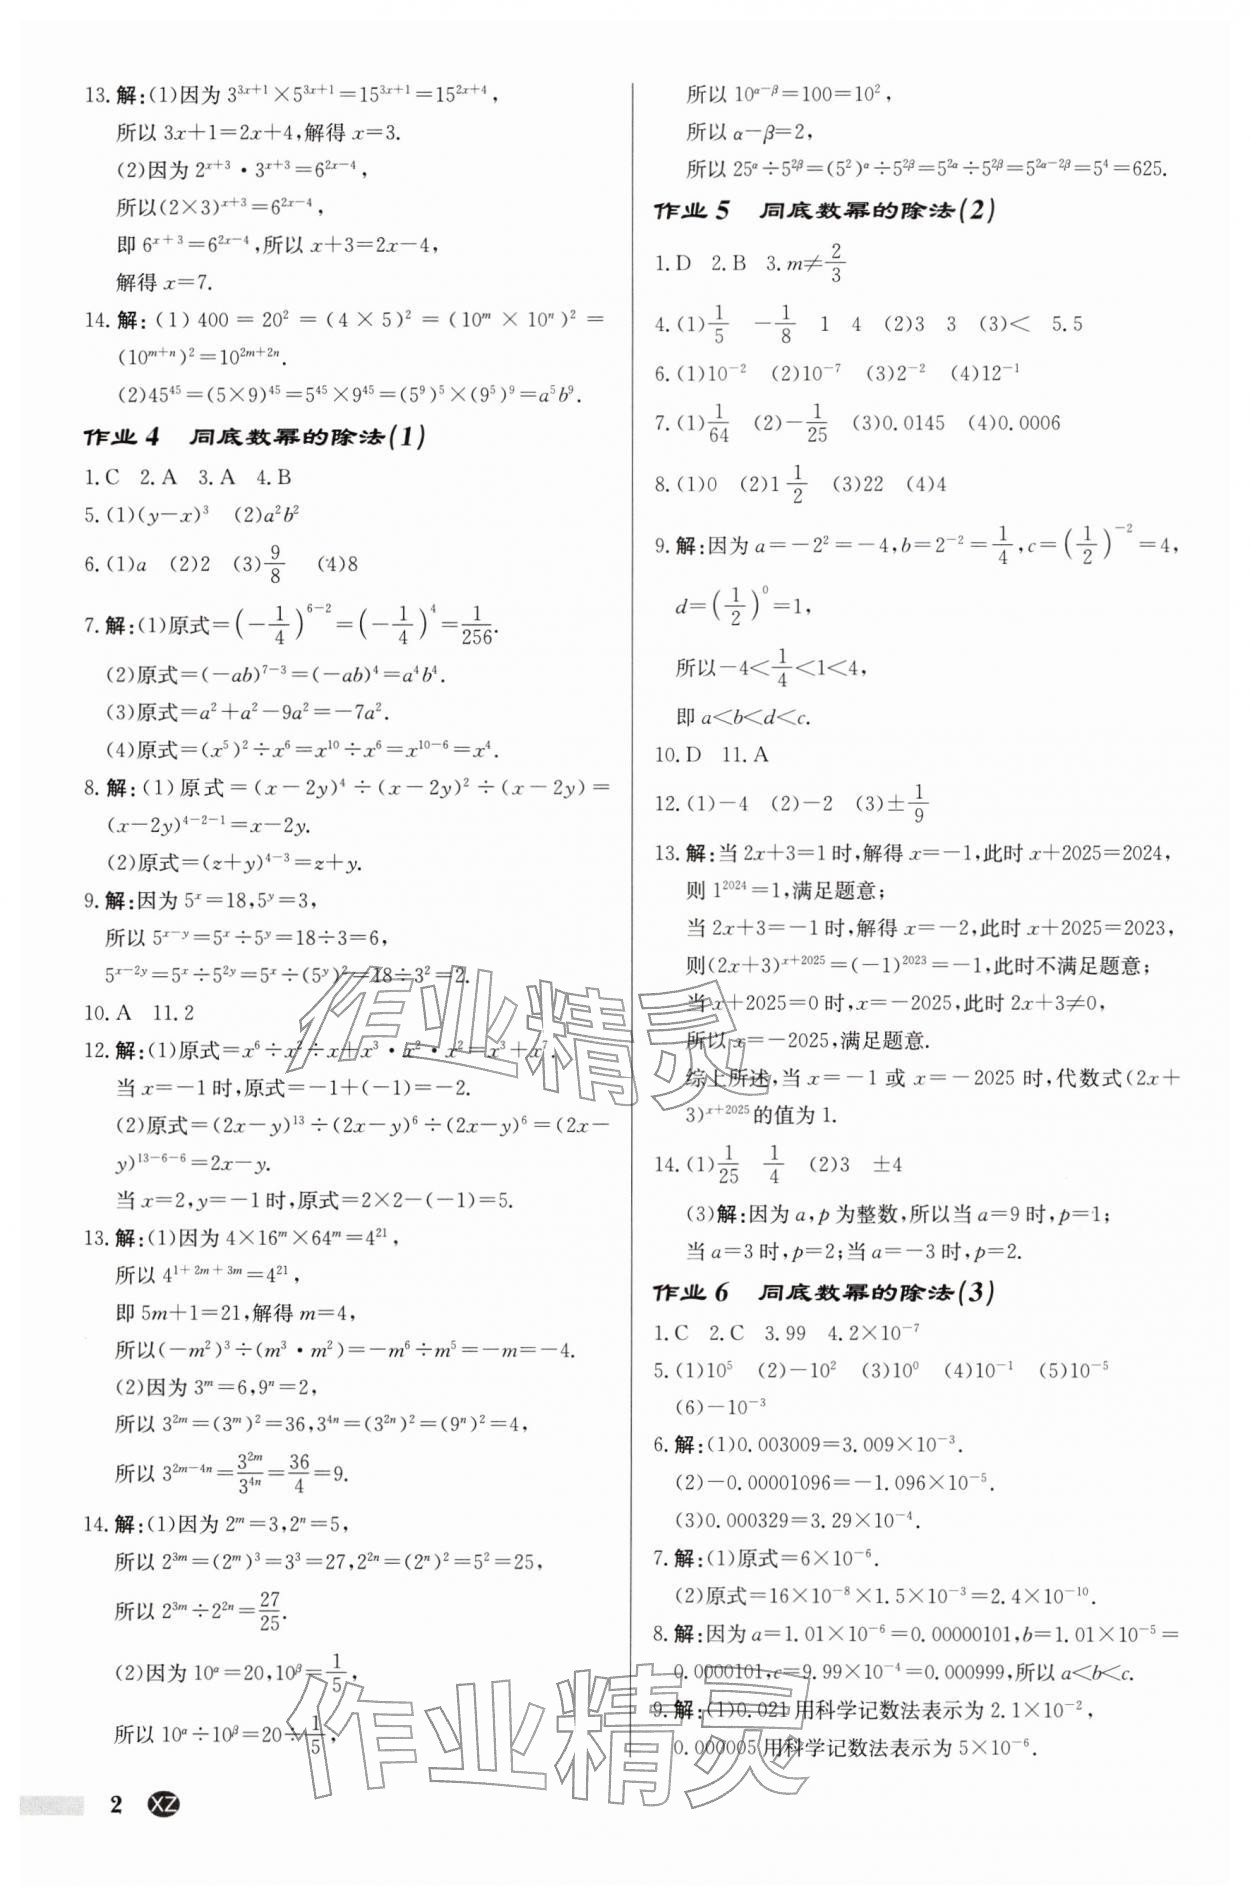 13.解:(1)因为 3^{3x+1}×5^{3x+1}=15^{3x+1}=15^{2x+4},
所以 3x+1=2x+4,解得 x=3.
(2)因为 2^{x+3}·3^{x+3}=6^{2x-4},
所以(2×3)^{x+3}=6^{2x-4},
即 6^{x+3}=6^{2x-4},所以 x+3=2x-4,
解得 x=7.
14.解:(1)400=20²=(4×5)²=(10^m×10^n)²=
(10^{m+n})²=10^{2m+2n}.
(2)45^{45}=(5×9)^{45}=5^{45}×9^{45}=(5^9)^5×(9^5)^9=a^5b^9.
作业4 同底数幂的除法(1)
1.C 2.A 3.A 4.B
5.(1)(y-x)³ (2)a²b²
6.(1)a (2)2 (3)9/8 (4)8
7.解:(1)原式=(-1/4)^{6-2}=(-1/4)^4=1/256.
(2)原式=(-ab)^{7-3}=(-ab)^4=a^4b^4.
(3)原式=a²+a²-9a²=-7a².
(4)原式=(x^5)²÷x^6=x^{10}÷x^6=x^{10-6}=x^4.
8.解:(1)原式=(x-2y)^4÷(x-2y)²÷(x-2y)=
(x-2y)^{4-2-1}=x-2y.
(2)原式=(z+y)^{4-3}=z+y.
9.解:因为 5^x=18,5^y=3,
所以 5^{x-y}=5^x÷5^y=18÷3=6,
5^{x-2y}=5^x÷5^{2y}=5^x÷(5^y)²=18÷3²=2.
10.A 11.2
12.解:(1)原式=x^6÷x²÷x+x³·x²·x²=x³+x^7.
当 x=-1 时,原式=-1+(-1)=-2.
(2)原式=(2x-y)^{13}÷(2x-y)^6÷(2x-y)^6=(2x-
y)^{13-6-6}=2x-y.
当 x=2,y=-1 时,原式=2×2-(-1)=5.
13.解:(1)因为 4×16^m×64^m=4^{21},
所以 4^{1+2m+3m}=4^{21},
即 5m+1=21,解得 m=4,
所以(-m²)³÷(m³·m²)=-m^6÷m^5=-m=-4.
(2)因为 3^m=6,9^n=2,
所以 3^{2m}=(3^m)²=36,3^{4n}=(3^{2n})²=(9^n)²=4,
所以 3^{2m-4n}=3^{2m}/3^{4n}=36/4=9.
14.解:(1)因为 2^m=3,2^n=5,
所以 2^{3m}=(2^m)³=3³=27,2^{2n}=(2^n)²=5²=25,
所以 2^{3m}÷2^{2n}=27/25.
(2)因为 10^α=20,10^β=1/5,
所以 10^α÷10^β=20÷1/5,
所以 10^{α-β}=100=10²,
所以 α-β=2,
所以 25^α÷5^{2β}=(5²)^α÷5^{2β}=5^{2α}÷5^{2β}=5^{2α-2β}=5^4=625.
作业5 同底数幂的除法(2)
1.D 2.B 3.m≠2/3
4.(1)1/5 -1/8 1 4 (2)3 3 (3)< 5.5
6.(1)10^{-2} (2)10^{-7} (3)2^{-2} (4)12^{-1}
7.(1)1/64 (2)-1/25 (3)0.0145 (4)0.0006
8.(1)0 (2)1 1/2 (3)22 (4)4
9.解:因为 a=-2²=-4,b=2^{-2}=1/4,c=(1/2)^{-2}=4,
d=(1/2)^0=1,
所以-4<1/4<1<4,
即 a<b<d<c.
10.D 11.A
12.(1)-4 (2)-2 (3)±1/9
13.解:当 2x+3=1 时,解得 x=-1,此时 x+2025=2024,
则 1^{2024}=1,满足题意;
当 2x+3=-1 时,解得 x=-2,此时 x+2025=2023,
则(2x+3)^{x+2025}=(-1)^{2023}=-1,此时不满足题意;
当 x+2025=0 时,x=-2025,此时 2x+3≠0,
所以 x=-2025,满足题意.
综上所述,当 x=-1 或 x=-2025 时,代数式(2x+
3)^{x+2025}的值为 1.
14.(1)1/25 1/4 (2)3 ±4
(3)解:因为 a,p 为整数,所以当 a=9 时,p=1;
当 a=3 时,p=2;当 a=-3 时,p=2.
作业6 同底数幂的除法(3)
1.C 2.C 3.99 4.2×10^{-7}
5.(1)10^5 (2)-10² (3)10^0 (4)10^{-1} (5)10^{-5}
(6)-10^{-3}
6.解:(1)0.003009=3.009×10^{-3}.
(2)-0.00001096=-1.096×10^{-5}.
(3)0.000329=3.29×10^{-4}.
7.解:(1)原式=6×10^{-6}.
(2)原式=16×10^{-8}×1.5×10^{-3}=2.4×10^{-10}.
8.解:因为 a=1.01×10^{-6}=0.00000101,b=1.01×10^{-5}=
0.0000101,c=9.99×10^{-4}=0.000999,所以 a<b<c.
9.解:(1)0.021 用科学记数法表示为 2.1×10^{-2},
0.000005 用科学记数法表示为 5×10^{-6}.
作业精灵
作业精灵
2 XZ